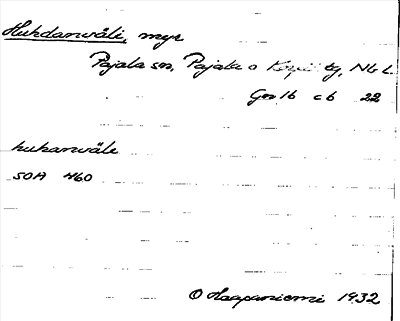 Huhdanväli, myr
Pajala sn, Pajala o tg, Nb L.
Gn 16 c 6 22
huhanväli
SOA 460
O Haapaniemi 1932